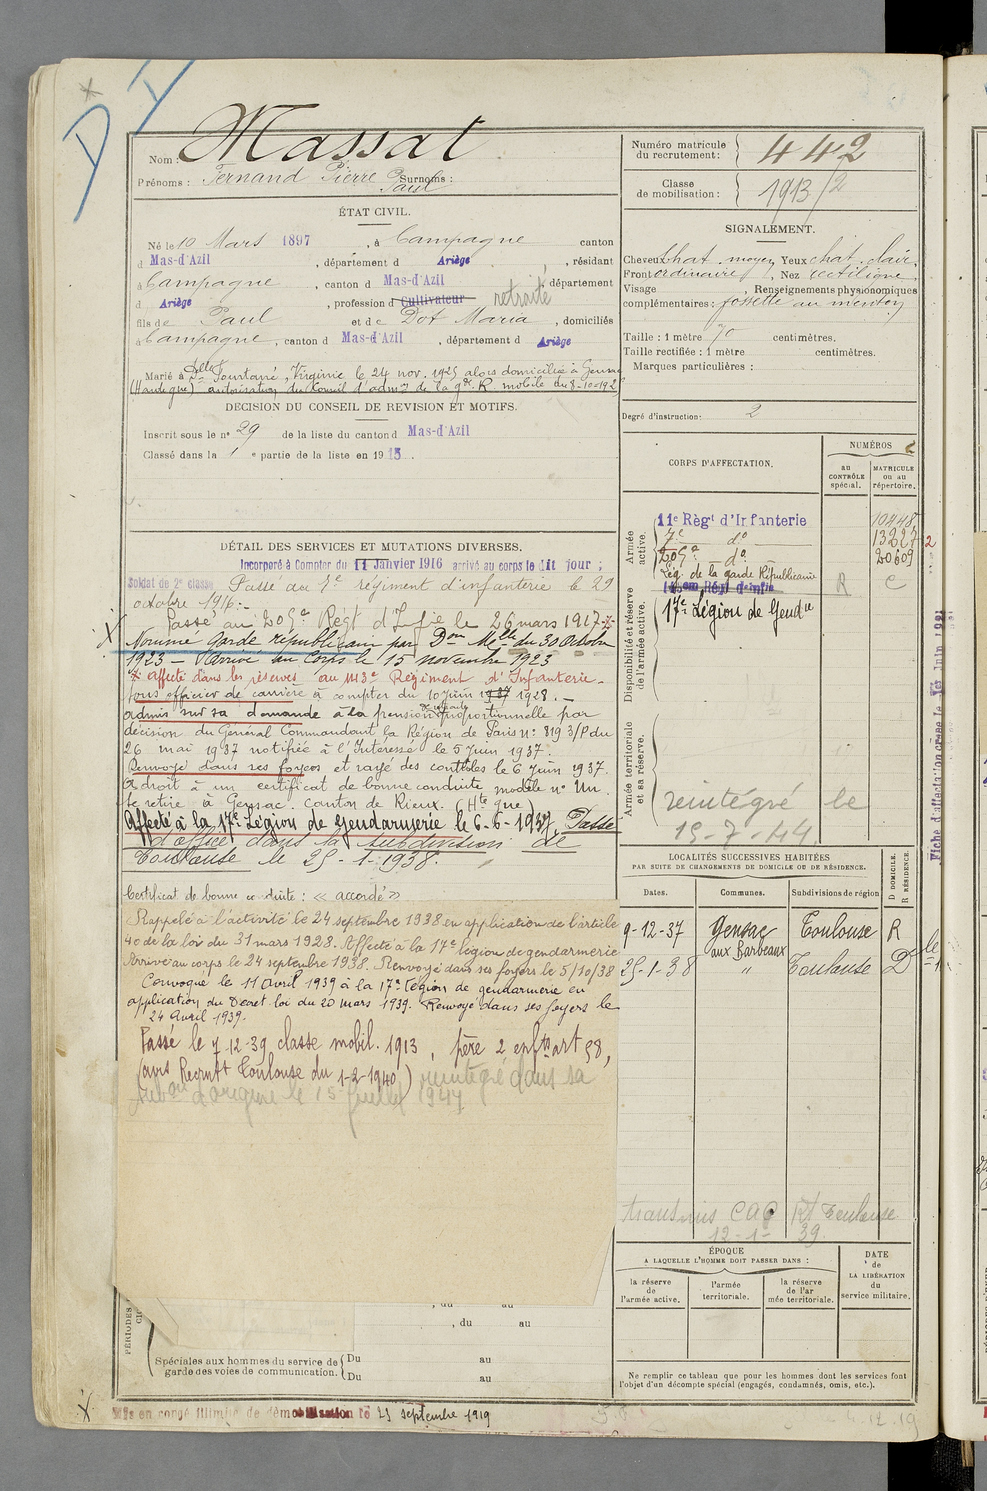 D I
Nom : Massat
Prénoms : Fernand Pierre Paul Surnoms :
Numéro matricule du recrutement : 442
Classe de mobilisation : 1913/2
ÉTAT CIVIL.
Né le 10 Mars 1897, à Campagne canton
d Mas-d'Azil, département d Ariège, résidant
à Campagne, canton d Mas-d'Azil, département
d Ariège, profession d Cultivateur retraité
fils de Paul et de Dot Maria, domiciliés
à Campagne, canton d Mas-d'Azil, département d Ariège
Marié à Delle Fontané, Virginie le 24 nov. 1925 alors domiciliée à Gensac
(Haute Gne) autorisation du Conseil d'admon de la gde R. mobile du 8-10-192
DECISION DU CONSEIL DE REVISION ET MOTIFS.
Inscrit sous le n° 29 de la liste du canton d Mas-d'Azil
Classé dans la 1 e partie de la liste en 1915.
SIGNALEMENT.
Cheveux chat. moyen Yeux chat. clair.
Front ordinaire, Nez rectiligne
Visage , Renseignements physionomiques
complémentaires : fossette au menton
Taille : 1 mètre 70 centimètres.
Taille rectifiée : 1 mètre centimètres.
Marques particulières :
Degré d'instruction : 2
CORPS D'AFFECTATION.
NUMÉROS
au CONTRÔLE spécial.
MATRICULE ou au répertoire.
Armée active.
11e Régt d'Infanterie 10448
7e do 13227
209e do 20609
Lég. de la garde Républicaine R C
Disponibilité et réserve de l'armée active.
17e Légion de Gendie
Armée territoriale et sa réserve.
réintégré le
15-7-44
DÉTAIL DES SERVICES ET MUTATIONS DIVERSES.
Incorporé à Compter du 11 Janvier 1916 arrivé au corps le dit jour ;
Soldat de 2e classe Passé au 7e régiment d'infanterie le 29
octobre 1916.-
Passé au 209e Régt d'Infie le 26 mars 1917
Nommé Garde républicain par Don Mlle du 30 Octobre
1923 — Arrivé au Corps le 15 novembre 1923
affecté dans les réserves au 143e Régiment d'Infanterie-
sous officier de carrière à compter du 10 juin 1937 1928.-
admis sur sa demande à la pension de retraite proportionnelle par
décision du Général Commandant la Région de Paris n° 819 3/P du
26 mai 1937 notifiée à l'Intéressé le 5 Juin 1937.
Renvoyé dans ses foyers et rayé des contrôles le 6 Juin 1937.
A droit à un certificat de bonne conduite modèle n° Un.
Se retire à Gensac. canton de Rieux. (Hte Gne)
Affecté à la 17e Légion de Gendarmerie le 6-6-1937. Passé
d'office dans la subdivision de
Toulouse le 25-1-1938.
Certificat de bonne conduite : « accordé »
Rappelé à l'activité le 24 septembre 1938 en application de l'article
40 de la loi du 31 mars 1928. Affecté à la 17e légion de gendarmerie
Arrivé au corps le 24 septembre 1938. Renvoyé dans ses foyers le 5/10/38
Convoqué le 11 Avril 1939 à la 17e Légion de gendarmerie en
application du Décret loi du 20 mars 1939. Renvoyé dans ses foyers le
24 Avril 1939.
Passé le 7-12-39 classe mobil. 1913, père 2 enfts art 58,
(avis Recrutt Toulouse du 1-2-1940) réintégré dans sa
subon d'origine le 15 juillet 1944
LOCALITÉS SUCCESSIVES HABITÉES
PAR SUITE DE CHANGEMENTS DE DOMICILE OU DE RÉSIDENCE.
Dates. Communes. Subdivisions de région
D DOMICILE. R RÉSIDENCE.
9-12-37 Gensac aux Barbeaux Toulouse R
25-1-38 " Toulouse D
transmis Rt Toulouse
12-1-39.
ÉPOQUE
A LAQUELLE L'HOMME DOIT PASSER DANS :
la réserve de l'armée active.
l'armée territoriale.
la réserve de l'armée territoriale.
DATE de LA LIBÉRATION du service militaire.
, du au
, du au
Spéciales aux hommes du service de garde des voies de communication.
Du au
Du au
Ne remplir ce tableau que pour les hommes dont les services font
l'objet d'un décompte spécial (engagés, condamnés, omis, etc.).
Mis en congé illimité de démobilisation le 23 septembre 1919